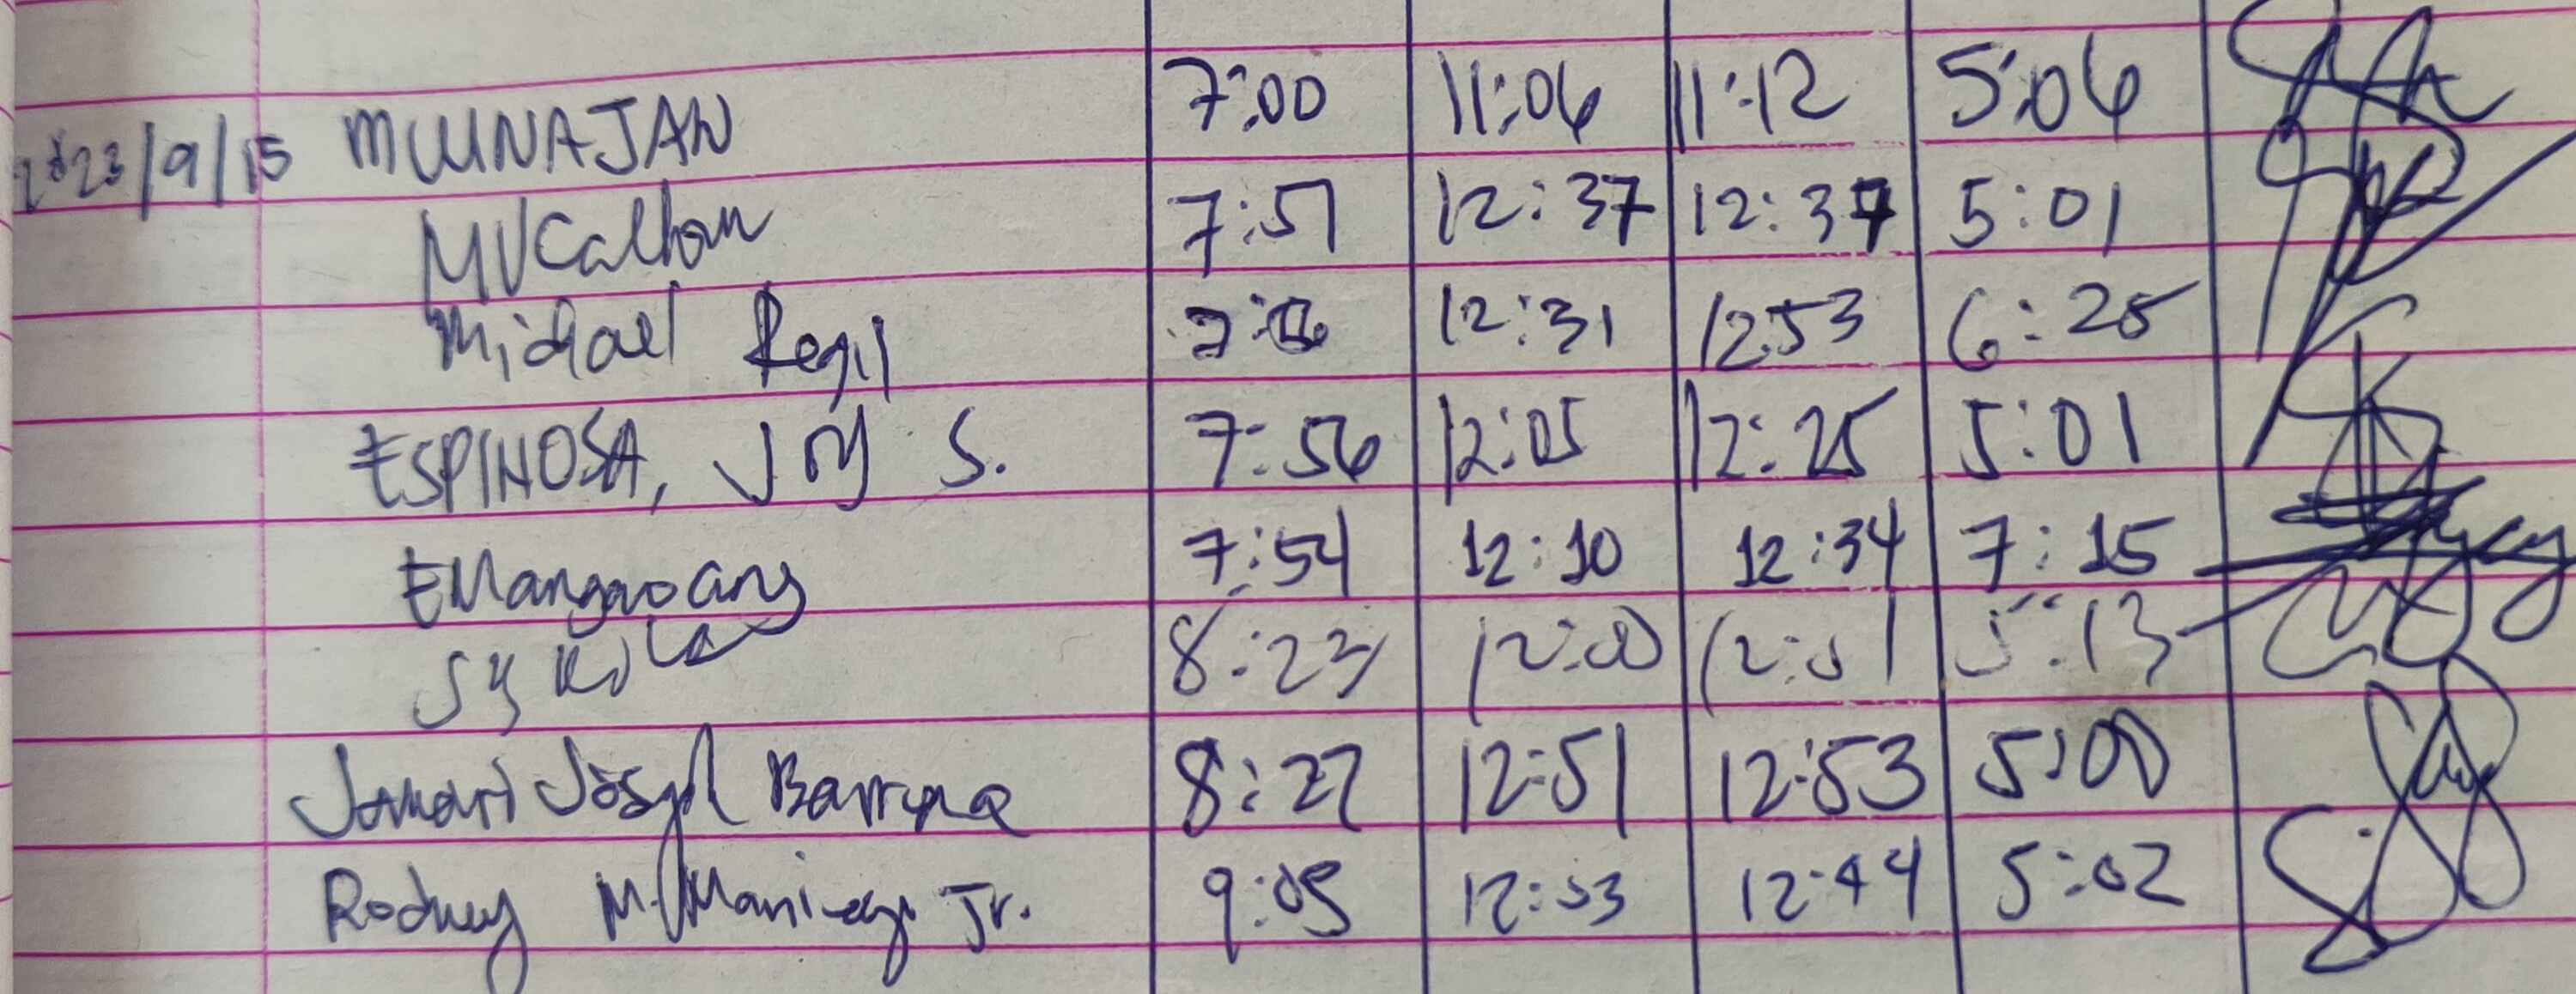 2023/9/15 MUNAJAN 7:00 11:06 11:12 5:06
MVCalhoun 7:51 12:37 12:37 5:01
Michael Regil 12:31 12:53 6:25
ESPINOSA, JOY S. 7:56 12:05 12:25 5:01
EMangaoang 7:54 12:10 12:34 7:15
8:23 12:00 12:01 5:13
Jomari Joseph 8:22 12:51 12:53 5:00
Rodney M. Jr. 9:05 12:33 12:44 5:02